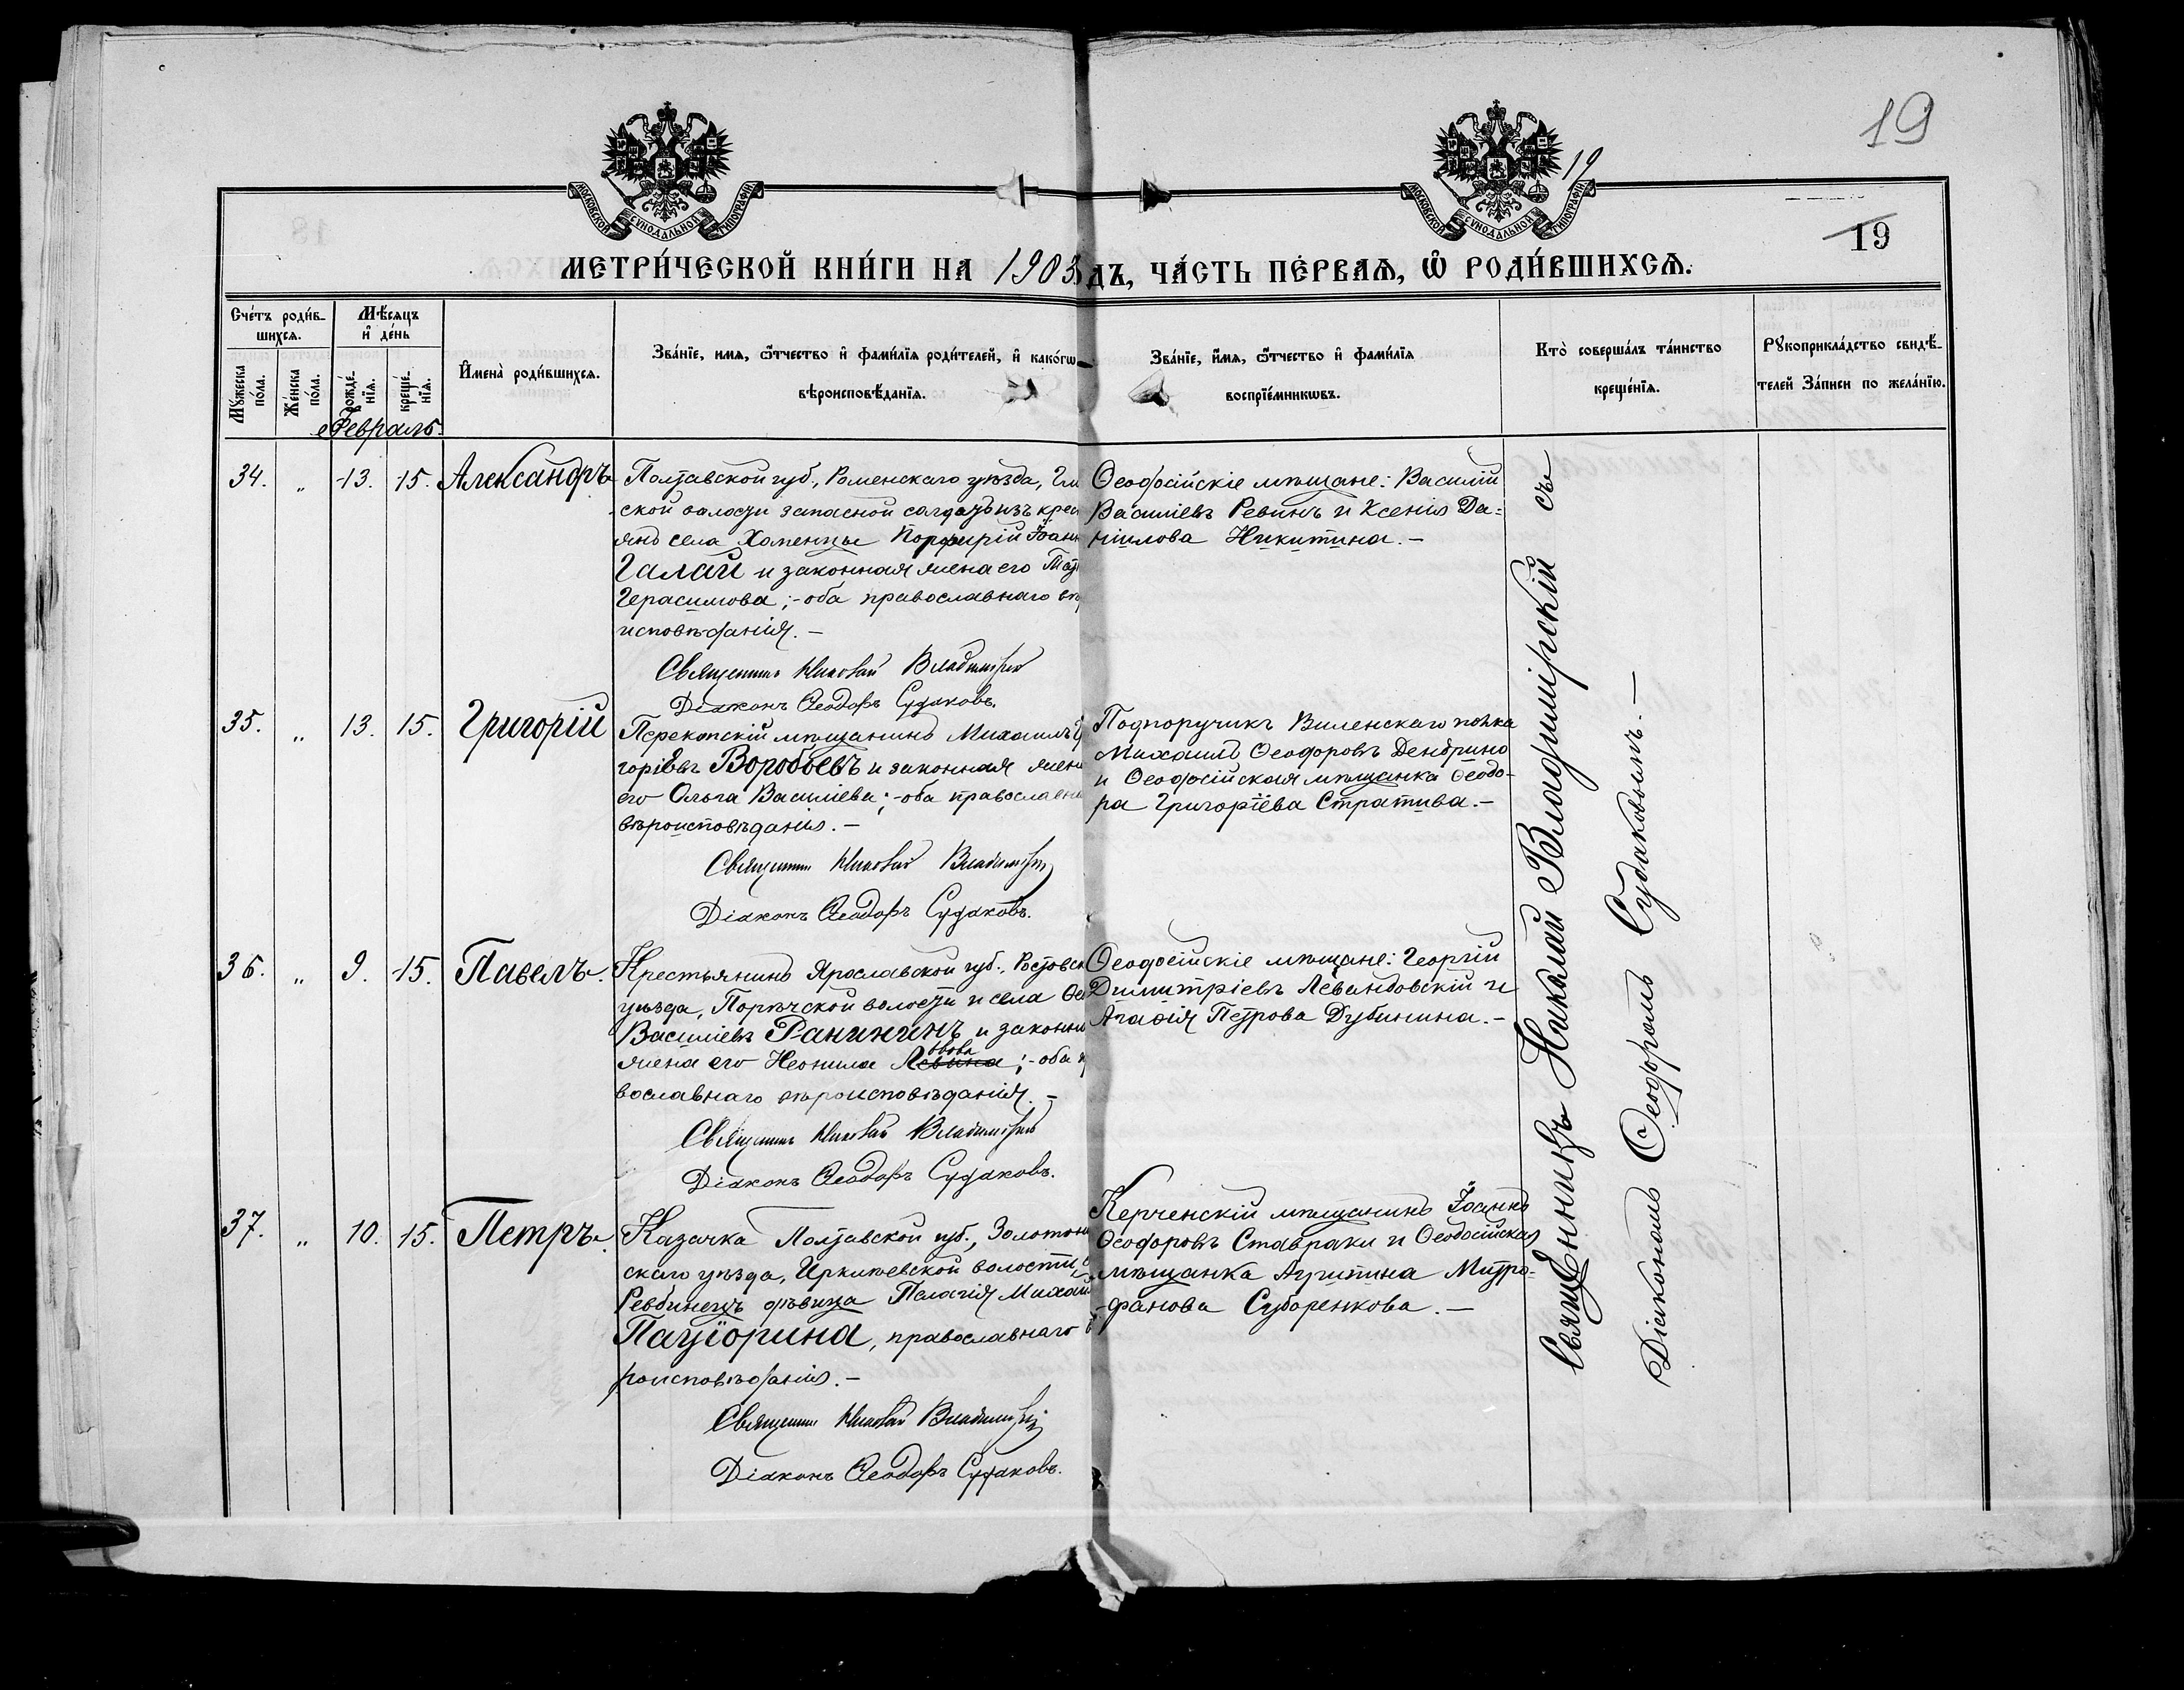 19
19
19
МОСКОВСКОЙ СѴНОДАЛЬНОЙ ТИПОГРАФІИ
МОСКОВСКОЙ СѴНОДАЛЬНОЙ ТИПОГРАФІИ
МЕТРИ́ЧЕСКОЙ КНИ́ГИ НА 1903 ДЪ, ЧА́СТЬ ПЕ́РВАѦ, Ѡ РОДИ́ВШИХСѦ.
Сче́тъ роди́в-
шихсѧ.
Мѣ́сѧцъ
и де́нь
Мꙋ́жеска по́ла.
Же́нска по́ла.
рожде́-
нїѧ.
креще́-
нїѧ.
Имена̀ роди́вшихсѧ.
Зва́нїе, имѧ, ѻ́тчество и фами́лїѧ роди́телей, и како́гѡ
вѣроисповѣ́данїѧ.
Зва́нїе, и́мѧ, ѻ́тчество и фами́лїѧ
воспрїе́мникѡвъ.
Кто̀ соверша́лъ та́инство
креще́нїѧ.
Рꙋкоприкла́дство свидѣ́-
телей За́писи по жела́нїю.
Февраль.
34. „ 13. 15. Александръ
Полтавской губ., Роменскаго уѣзда, Гли
ской волости запасной солдатъ изъ крес
янъ села Хоменцы Порфирій Іоанн
Галай и законная жена его Тат
Герасимова; - оба православнаго вѣ
исповѣданія. -
Священникъ Николай Владимірскій
Діаконъ Ѳеодоръ Судаковъ.
Ѳеодосійскіе мѣщане: Василій
Васильевъ Ревинъ и Ксенія Да-
ніилова Никитина. -
35. „ 13. 15. Григорій
Перекопскій мѣщанинъ Михаилъ Гр
горіевъ Воробьевъ и законная жена
его Ольга Василіева; - оба православна
вѣроисповѣданія. -
Священникъ Николай Владимірскій
Діаконъ Ѳеодоръ Судаковъ.
Подпоручикъ Виленскаго полка
Михаилъ Ѳеодоровъ Дендрино
и Ѳеодосійская мѣщанка Ѳеодо-
ра Григоріева Стратива. -
36. „ 9. 15. Павелъ.
Крестьянинъ Ярославской губ., Ростовск
уѣзда, Порѣчской волости и села Ѳео
Василіевъ Ранининъ и законна
жена его Неонила Львова; - оба п
вославнаго вѣроисповѣданія. -
Священникъ Николай Владимірскій
Діаконъ Ѳеодоръ Судаковъ.
Ѳеодосійскіе мѣщане: Георгій
Димитріевъ Левандовскій и
Агаѳія Петрова Дубинина. -
37. „ 10. 15. Петръ.
Казачка Полтавской губ., Золотоно
скаго уѣзда, Ирклѣевской волости, с
Ревбинецъ дѣвица Пелагія Михай
Пацюрина, православнаго в
роисповѣданія. -
Священникъ Николай Владимірскій
Діаконъ Ѳеодоръ Судаковъ.
Керченскій мѣщанинъ Іоаннъ
Ѳеодоровъ Ставраки и Ѳеодосійская
мѣщанка Агрипина Митро-
фанова Субаренкова. -
Священникъ Николай Владимірскій съ
Діакономъ Ѳеодоромъ Судаковымъ. -